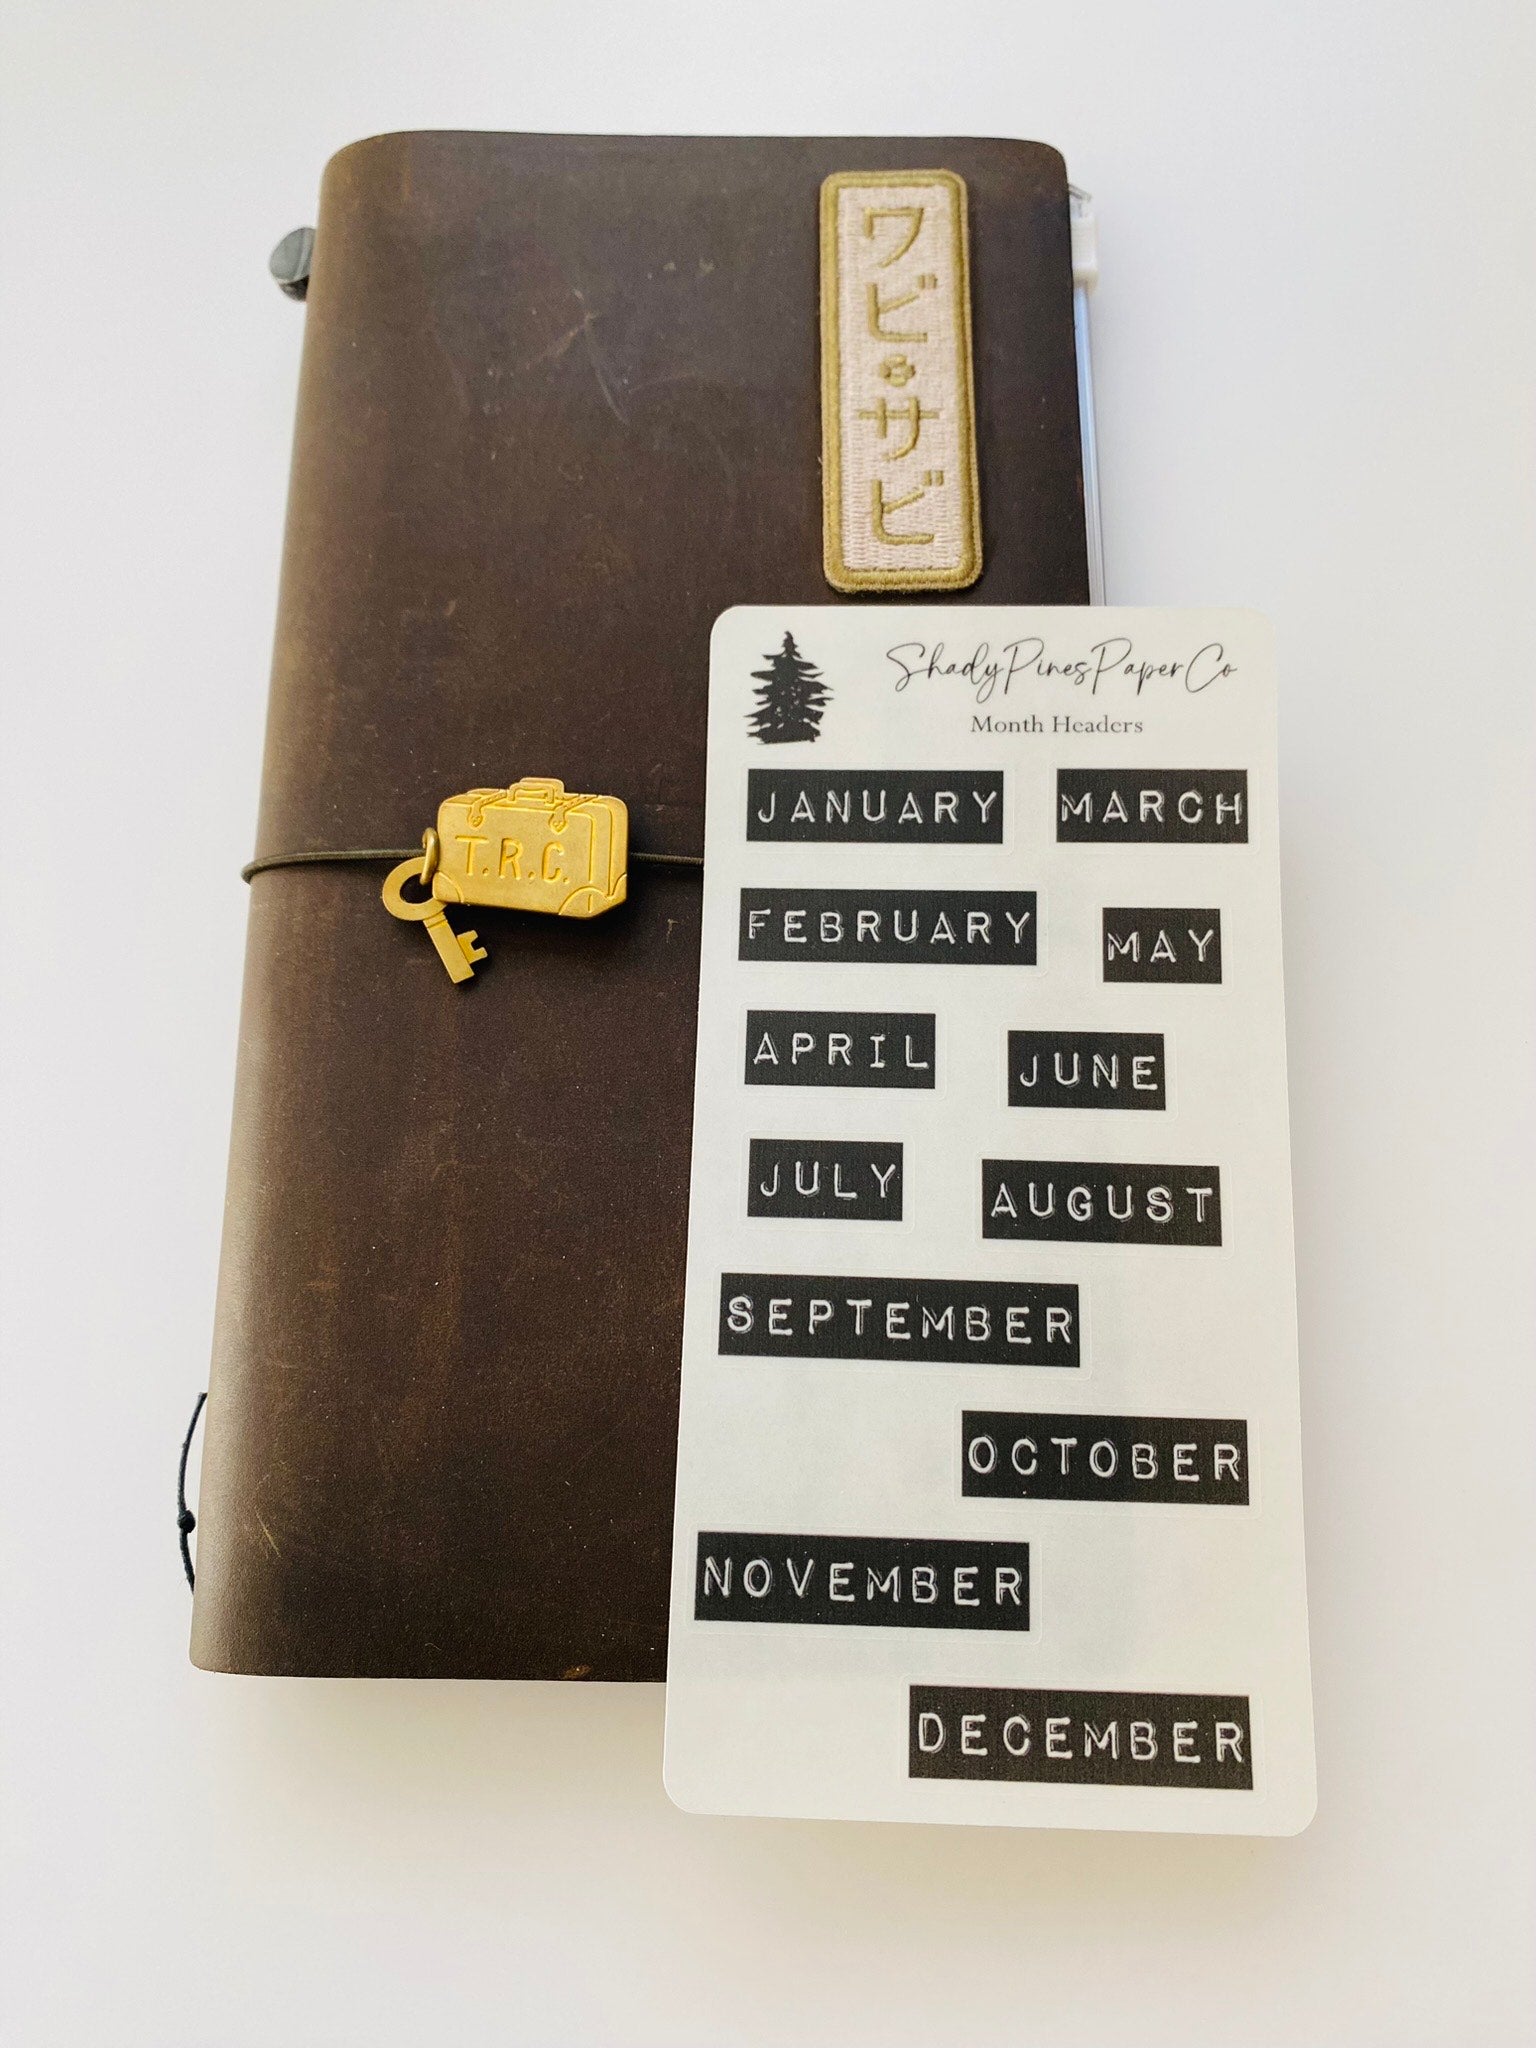 ワビ・サビ
T.R.C.
ShadyPinesPaperCo
Month Headers
JANUARY MARCH
FEBRUARY MAY
APRIL JUNE
JULY AUGUST
SEPTEMBER
OCTOBER
NOVEMBER
DECEMBER